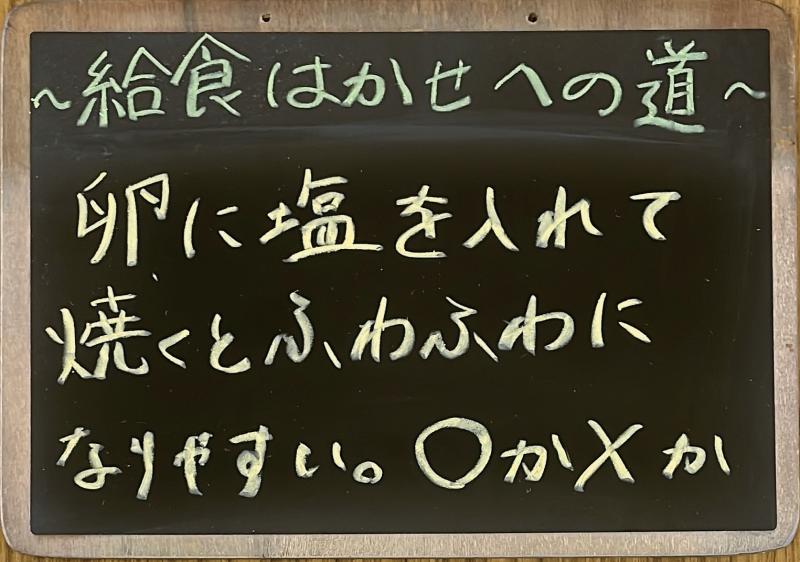 ~給食はかせへの道~
卵に塩を入れて
焼くとふわふわに
なりやすい。○か✕か